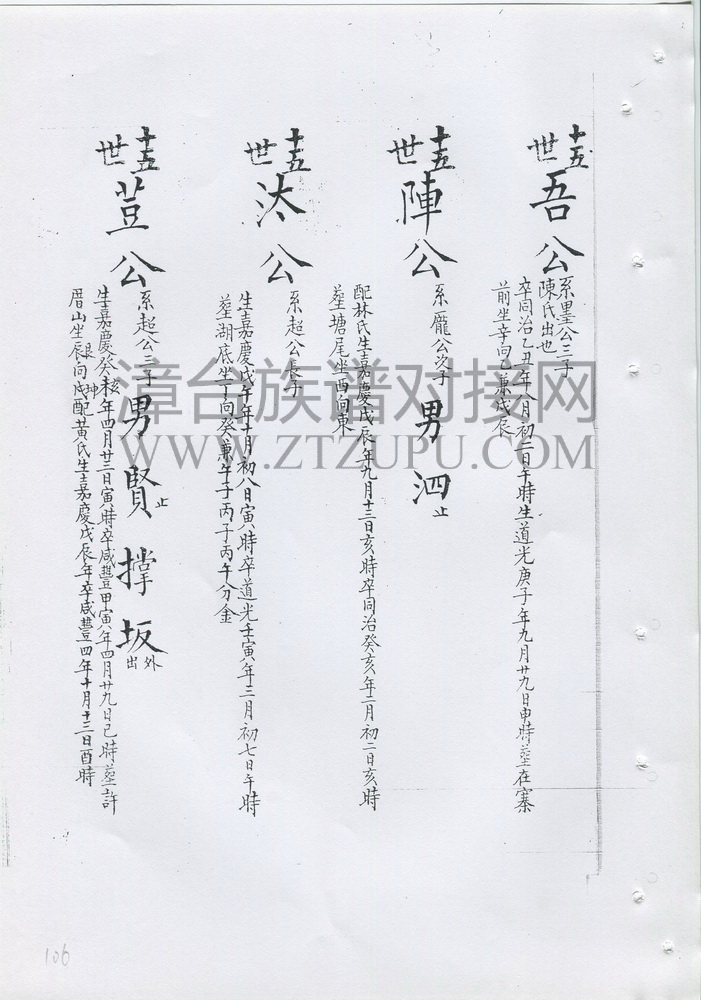 十五世
吾公
系墨公三子
陳氏出也
卒同治乙丑年八月初二日午時生道光庚子年九月廿九日申時塟在寨
前坐辛向乙兼戊辰
十五世
陣公
系龐公次子
男泗止
配林氏生嘉慶戊辰年九月十三日亥時卒同治癸亥年二月初二日亥時
塟塘尾坐酉向東
十五世
汰公
系超公長子
生嘉慶戊午年十月初八日寅時卒道光壬寅年三月初七日午時
塟湖底坐丁向癸兼午子丙子丙午分金
十五世
荳公
系超公三子
男賢止撑坂出外
生嘉慶癸未年四月廿三日寅時卒咸豐甲寅年四月廿九日巳時塟許
厝山坐辰向戌配黃氏生嘉慶戊辰年卒咸豐四年十月十三日酉時
漳台族谱对接网
WWW.ZTZUPU.COM
106